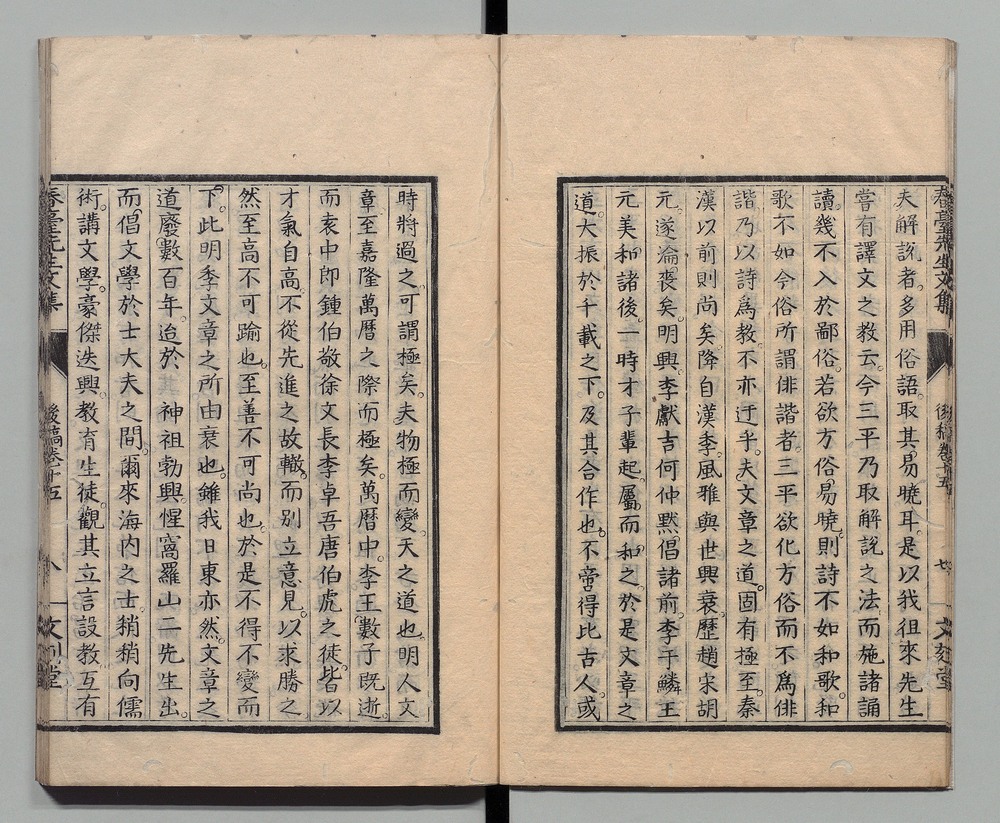 春臺先生文集
後稿卷十五
七
文刻堂
夫解說者。多用俗語。取其易曉耳。是以我徂來先生
嘗有譯文之教云。今三平乃取解說之法而施諸誦
讀。幾不入於鄙俗。若欲方俗易曉。則詩不如和歌。和
歌不如今俗所謂俳諧者。三平欲化方俗而不爲俳
諧。乃以詩爲教。不亦迂乎。夫文章之道。固有極至。秦
漢以前則尚矣。降自漢季。風雅與世興衰。歷趙宋胡
元。遂淪喪矣。明興。李獻吉何仲默倡諸前。李于鱗王
元美和諸後。一時才子輩起。屬而和之。於是文章之
道。大振於千載之下。及其合作也。不啻得比古人。或
時將過之。可謂極矣。夫物極而變。天之道也。明人文
章。至嘉隆萬曆之際而極矣。萬曆中。李王數子既逝。
而袁中郎鍾伯敬徐文長李卓吾唐伯虎之徒。皆以
才氣自高。不從先進之故轍。而别立意見。以求勝之
然至高不可踰也。至善不可尚也。於是不得不變而
下。此明季文章之所由衰也。雖我日東亦然。文章之
道廢數百年。迨於 神祖勃興。惺窩羅山二先生出。
而倡文學於士大夫之間。爾來海内之士。稍稍向儒
術。講文學。豪傑迭興。教育生徒。觀其立言設教。互有
春臺先生文集
後稿卷十五
八
文刻堂